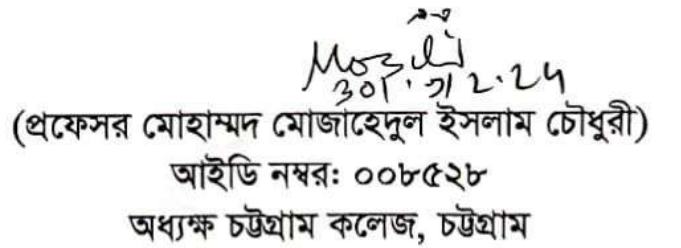 (প্রফেসর মোহাম্মদ মোজাহেদুল ইসলাম চৌধুরী)
আইডি নম্বর: ০০৮৫২৮
অধ্যক্ষ চট্টগ্রাম কলেজ, চট্টগ্রাম